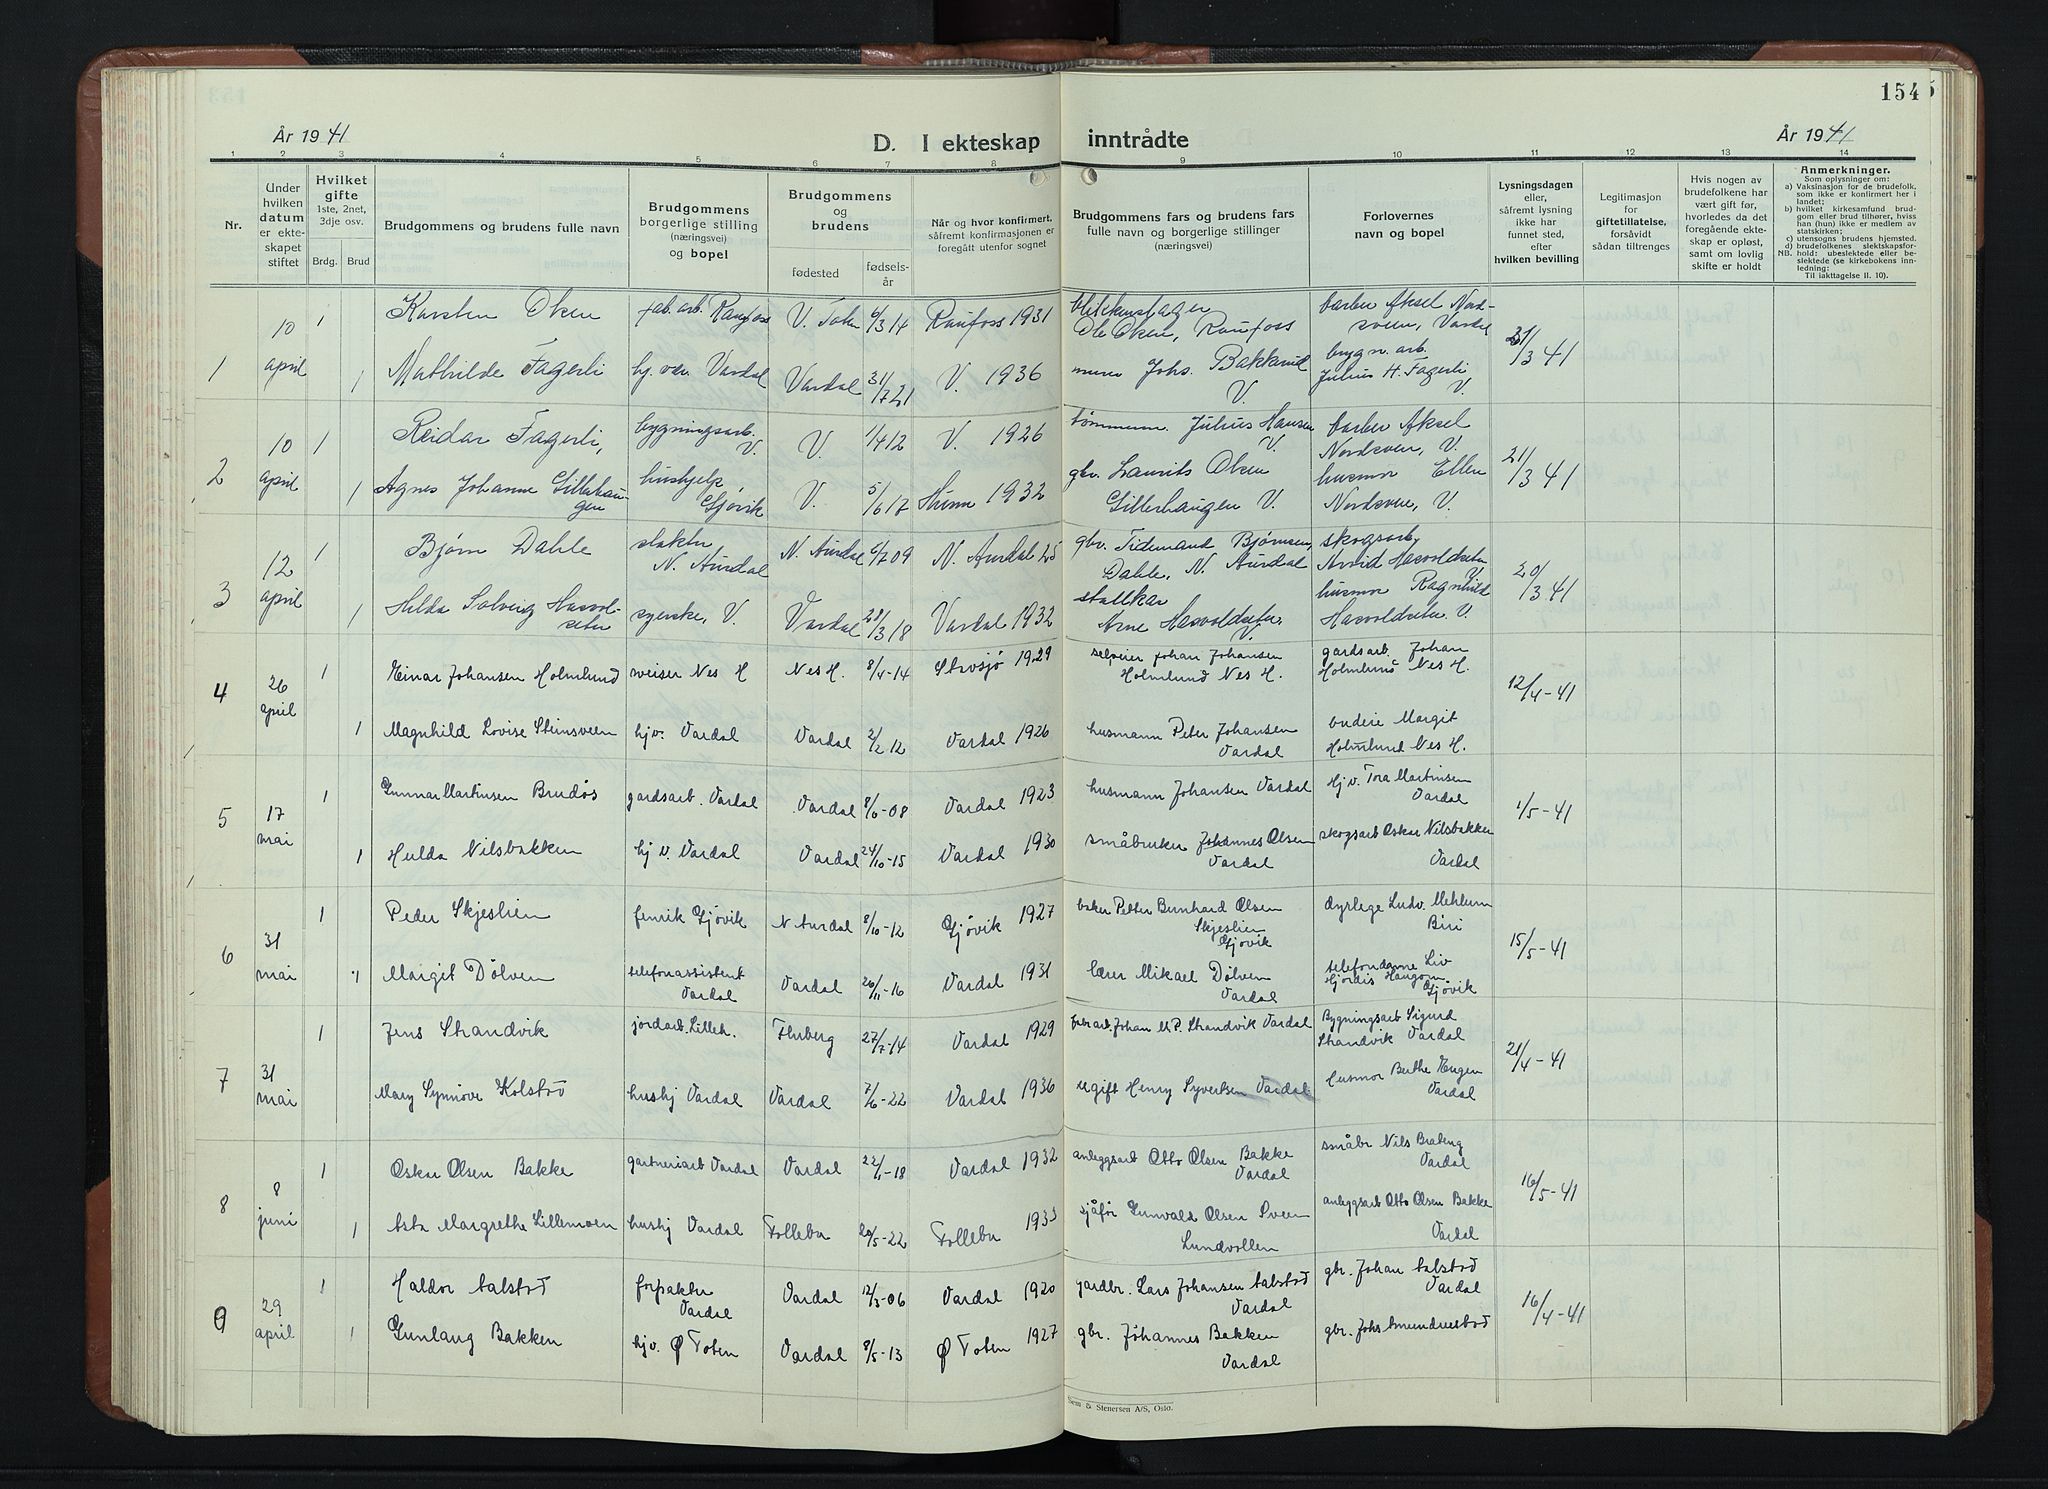 154
År 1941
D. I ekteskap inntrådte
År 1941
1 2 3 4 5 6 7 8 9 10 11 12 13 14
Nr.
Under hvilken datum er ekteskapet stiftet
Hvilket gifte
1ste, 2net, 3dje osv.
Brdg. Brud
Brudgommens og brudens fulle navn
Brudgommens borgerlige stilling (næringsvei) og bopel
Brudgommens og brudens
fødested
fødselsår
Når og hvor konfirmert, såfremt konfirmasjonen er foregått utenfor sognet
Brudgommens fars og brudens fars fulle navn og borgerlige stillinger (næringsvei)
Forlovernes navn og bopel
Lysningsdagen eller, såfremt lysning ikke har funnet sted, efter hvilken bevilling
Legitimasjon for giftetillatelse, forsåvidt sådan tiltrenges
Hvis nogen av brudefolkene har vært gift før, hvorledes da det foregående ekteskap er opløst, samt om lovlig skifte er holdt
Anmerkninger.
Som oplysninger om:
a) Vaksinasjon for de brudefolk, som ikke er konfirmert her i landet;
b) hvilket kirkesamfund brudgom eller brud tilhører, hviss han (hun) ikke er medlem av statskirken;
c) utensogns brudens hjemsted.
d) brudefolkenes slektskapsforhold: ubeslektede eller beslektede (se kirkebokens innledning:
NB.
Til iakttagelse II. 10).
1 10 april
1 Karsten Olsen fab. arb. Raufoss V. Toten 6/3 14 Raufoss 1931 Ole Olsen, Raufoss barber Aksel Nordsveen, Vardal 31/3 41
1 Mathilde Fagerli hj. vær. Vardal Vardal 31/7 21 V. 1936 murer Johs. Bakkerud V. bygn. arb. Julius H. Fagerli V.
2 10 april
1 Reidar Fagerli, bygningsarb. V. V. 1/4 12 V. 1926 tømmerm. Julius Hansen V. barber Aksel Nordsveen, V. 21/3 41
1 Agnes Johanne Gillerhaugen hushjelp, Gjøvik V. 5/6 17 Hunn 1932 gbr. Laurits Olsen Gillerhaugen V. husmor Ellen Nordsveen, V.
3 12 april
1 Bjørn Dahle slakter N. Aurdal N. Aurdal 6/7 09 N. Aurdal 25 gbr. Tidemand Bjørnsen Dahle, N. Aurdal skogsarb. Arvid Hasvoldseter V. 20/3 41
1 Hilda Solveig Hasvolseter syerske, V. Vardal 28/3 18 Vardal 1932 stallkar Arne Hasvoldseter, V. husmor Ragnhild Hasvoldseter V.
4 26 april
1 Einar Johansen Holmlund sveiser Nes H Nes H. 8/4-14 Stavsjø 1929 selveier Johan Johansen Holmlund Nes H. gardsarb. Johan Holmlund Nes H. 12/4-41
1 Magnhild Lovise Steinsveen hjv. Vardal Vardal 2/2 12 Vardal 1926 husmann Peter Johansen Vardal budeie Margit Holmlund Nes H.
5 17 mai
1 Gunnar Martinsen Brudås gardsarb. Vardal Vardal 8/6-08 Vardal 1923 husmann Johansen Vardal Hj v. Tora Martinsen Vardal 1/5-41
1 Hulda Nilsbakken hj v. Vardal Vardal 24/10-15 Vardal 1930 småbruker Johannes Olsen Vardal skogsarb Oskar Nilsbakken Vardal
6 31 mai
1 Peder Skjeslien fenrik Gjøvik N Aurdal 8/10-12 Gjøvik 1927 baker Petter Bernhard Olsen Skjeslien Gjøvik dyrlege Ludv. Mehlum Biri 15/5-41
1 Margit Dølven telefonassistent Vardal Vardal 26/11-16 Vardal 1931 lærer Mikael Dølven Vardal telefondame Liv Hjördis Haugom Gjøvik
7 31 mai
1 Jens Strandvik jordarb. Lilleh. Fluberg 27/7-14 Vardal 1929 Johan M. P. Strandvik Vardal Bygningsarb Sigurd Strandvik Vardal 21/4-41
Mary Synnøve Kolstad hushj Vardal Vardal 7/6-22 Vardal 1936 ugift Henry Syvertsen Vardal Husmor Berthe Haugen Vardal
8 8 juni
1 Oskar Olsen Bakke gartneriarb Vardal Vardal 22/1-18 Vardal 1932 anleggsarb Otto Olsen Bakke Vardal småbr Nils Brateng Vardal 16/5-41
1 Asta Margrethe Lillemoen hushj Vardal Follebu 20/5-22 Follebu 1933 sjåför Gunvald Olsen Sveen Lundvollen anleggsarb Otto Olsen Bakke Vardal
9 29 april
1 Haldor Aalstad forpakter Vardal Vardal 12/3-06 Vardal 1920 gardbr. Lars Johansen Aalstad Vardal gbr. Johan Aalstad Vardal 16/4-41
1 Gunlaug Bakken hjv. Ø Toten Vardal 8/5-13 Ø Toten 1927 gbr. Johannes Bakken Vardal gbr. Johs Amundrustad
Sem & Stenersen A/S, Oslo.